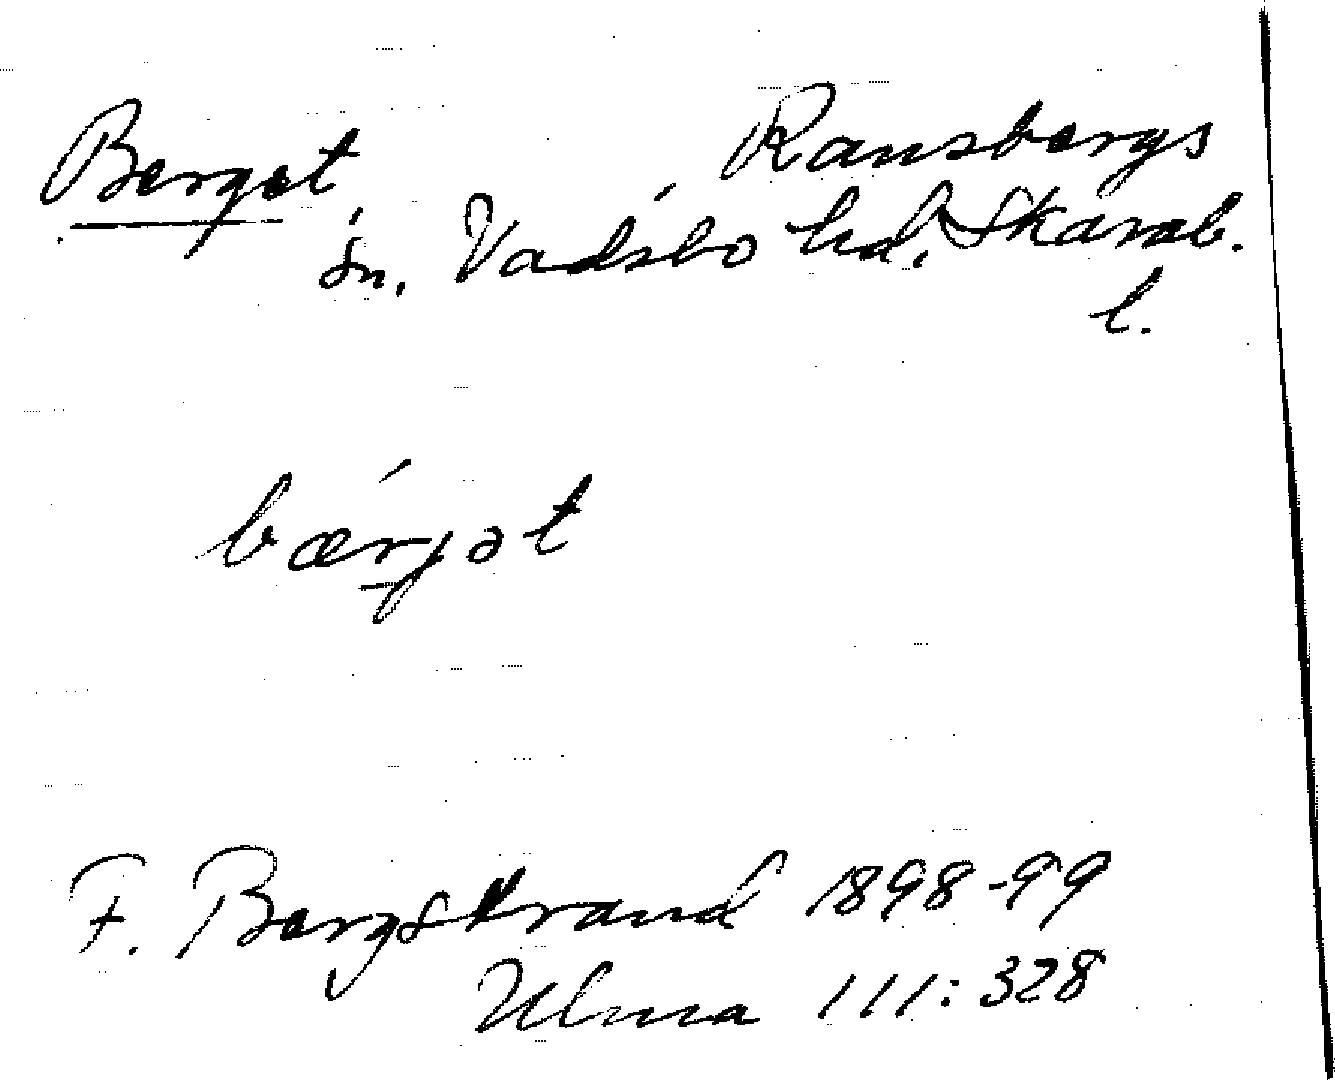 Berget Ransbergs
sn. Vadsbo hd, Skarab.
l.
bærjət
F. Bergstrand 1898-99
Ulma 111:328